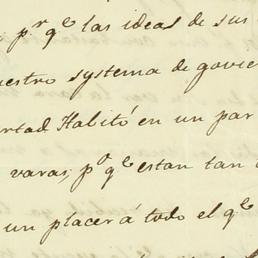 p.r q.e las ideas de sus
uestro systema de govie
ertad Habitó en un par
varas, p.o q.e estan tan
un placer á todo el q.e